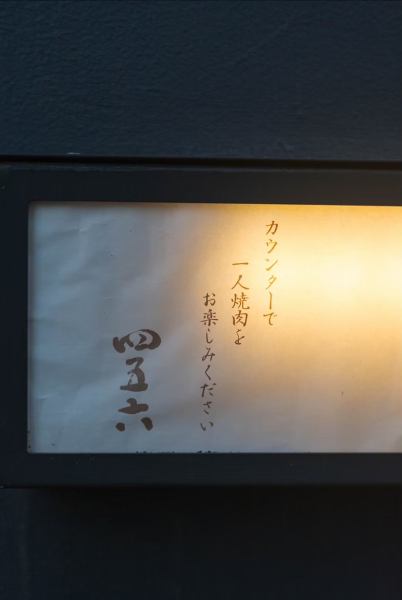 カウンターで
一人焼肉を
お楽しみください
四五六